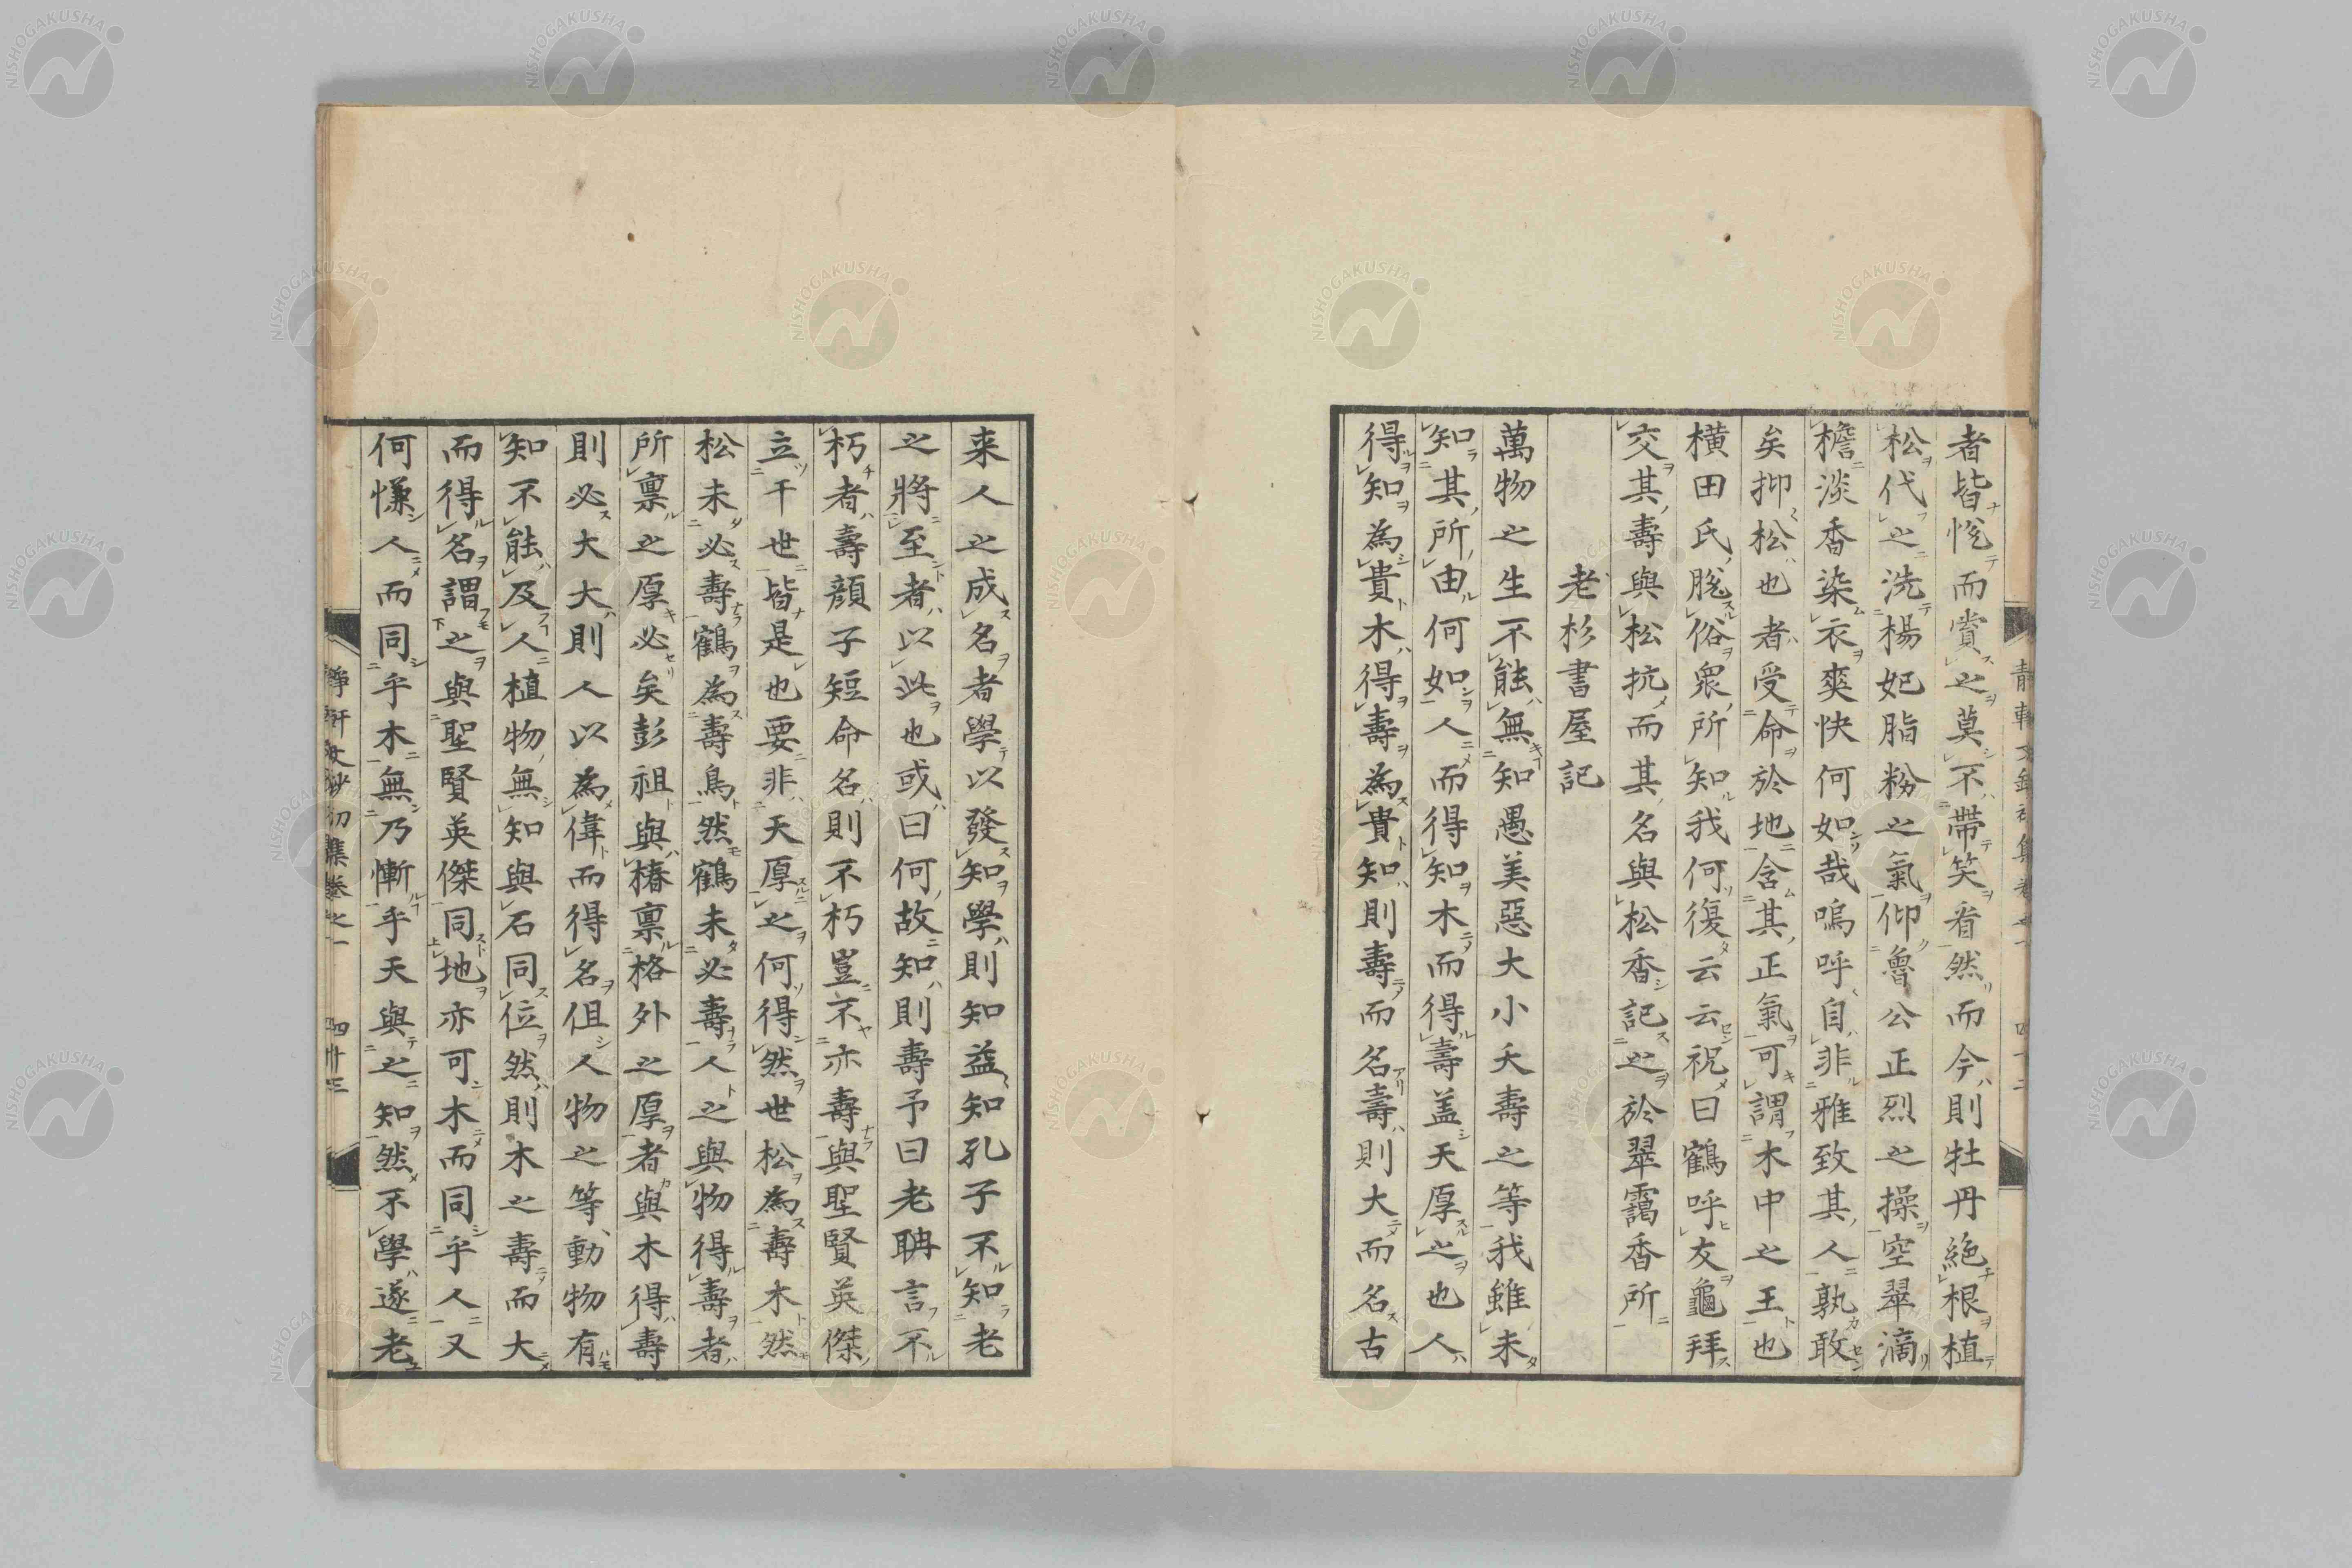 者皆悦而賞之莫不帶笑看然而今則牡丹絶根植
松代之洗楊妃脂粉之氣仰魯公正烈之操空翠滴
檐淡香染衣爽快何如哉嗚呼自非雅致其人孰敢
矣抑松也者受命於地含其正氣可謂木中之王也
横田氏脱俗衆所知我何復云云祝曰鶴呼友龜拜
交其壽與松抗而其名與松香記之於翠靄香所
老杉書屋記
萬物之生不能無知愚美惡大小夭壽之等我雖未
知其所由何如人而得知木而得壽盖天厚之也人
得知為貴木得壽為貴知則壽而名壽則大而名古
来人之成名者學以發知學則知益知孔子不知老
之將至者以此也或曰何故知則壽予曰老聃言不
朽者壽顔子短命名則不朽豈不亦壽與聖賢英傑
立于世皆是也要非天厚之何得然世松為壽木然
松未必壽鶴為壽鳥然鶴未必壽人之與物得壽者
所禀之厚必矣彭祖與椿禀格外之厚者與木得壽
則必大大則人以為偉而得名但人物之等動物有
知不能及人植物無知與石同位然則木之壽而大
而得名謂之與聖賢英傑同地亦可木而同乎人又
何慊人而同乎木無乃慚乎天與之知然不學遂老
靜軒文鈔初集卷之一 四十二
靜軒文鈔初集卷之一 四十三
NISHOGAKUSHA